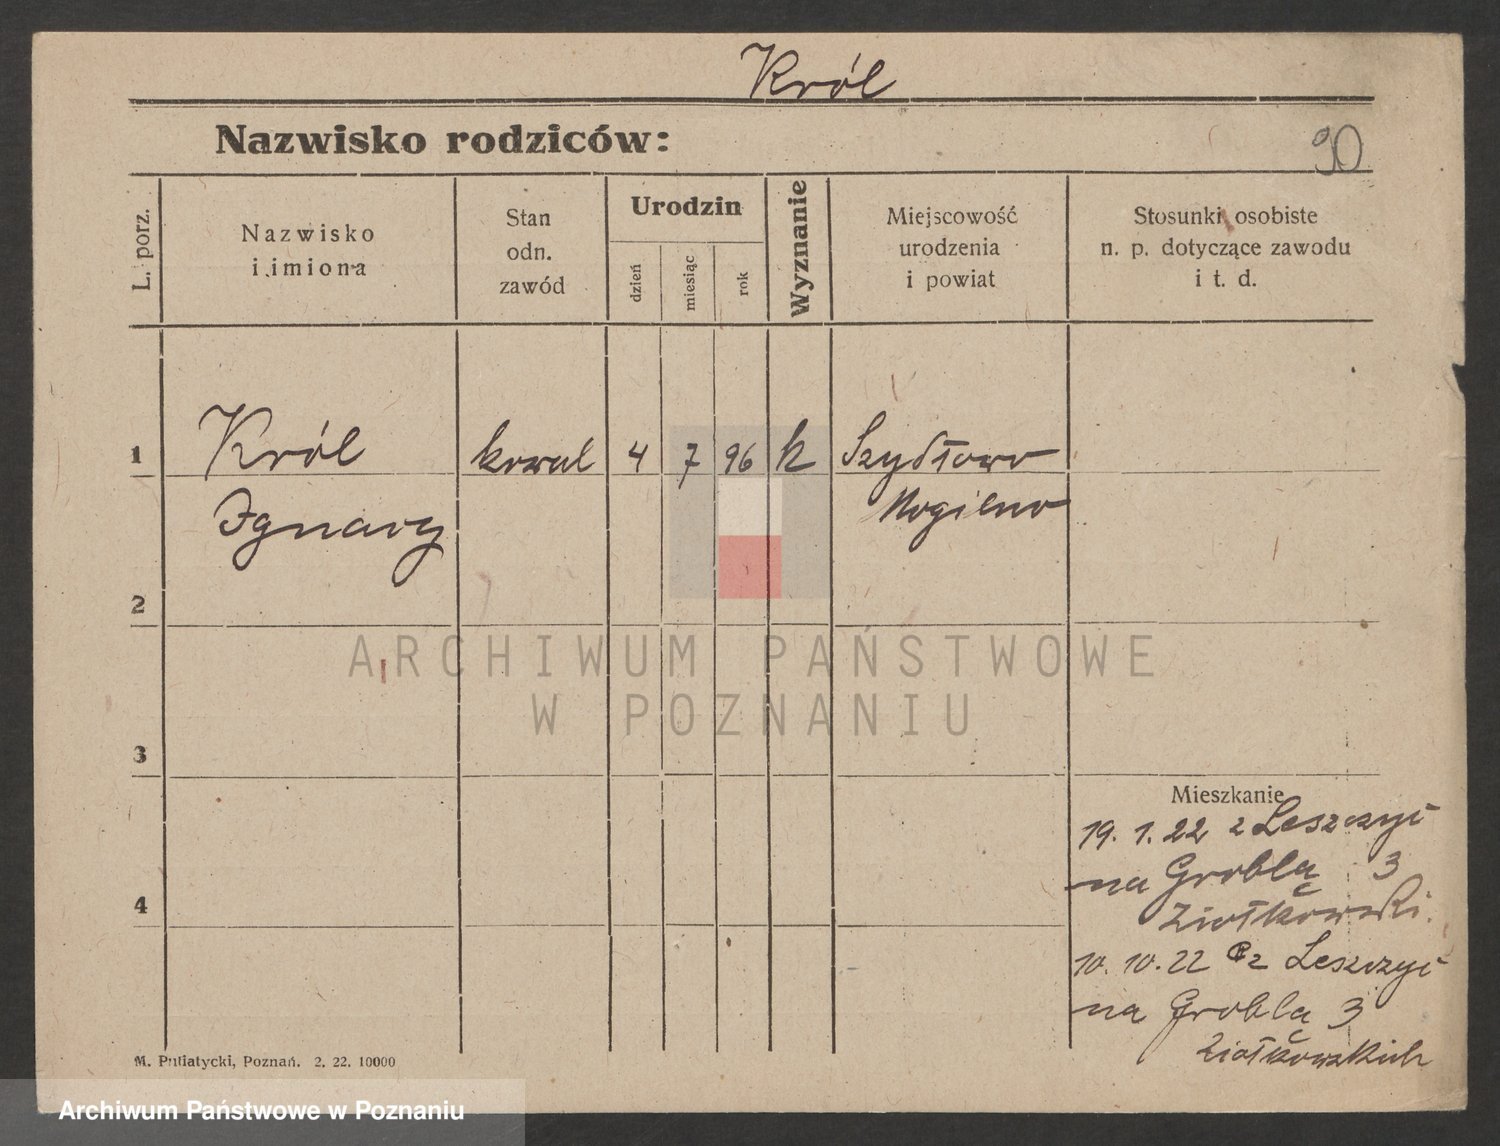 Król
Nazwisko rodziców:
90
L. porz.
Nazwisko
i imiona
Stan
odn.
zawód
Urodzin
dzień
miesiąc
rok
Wyznanie
Miejscowość
urodzenia
i powiat
Stosunki osobiste
n. p. dotyczące zawodu
i t. d.
1 Król kowal 4 7 96 k Szydłowo
Ignacy Mogilno
2
ARCHIWUM PAŃSTWOWE
W POZNANIU
3
Mieszkanie
19. 1. 22 z Leszczyc
na Groblą 3
Ziołkowski.
4
10. 10. 22 z Leszczyc
na Groblą 3
Ziołkowskich
M. Putiatycki, Poznań. 2. 22. 10000
Archiwum Państwowe w Poznaniu